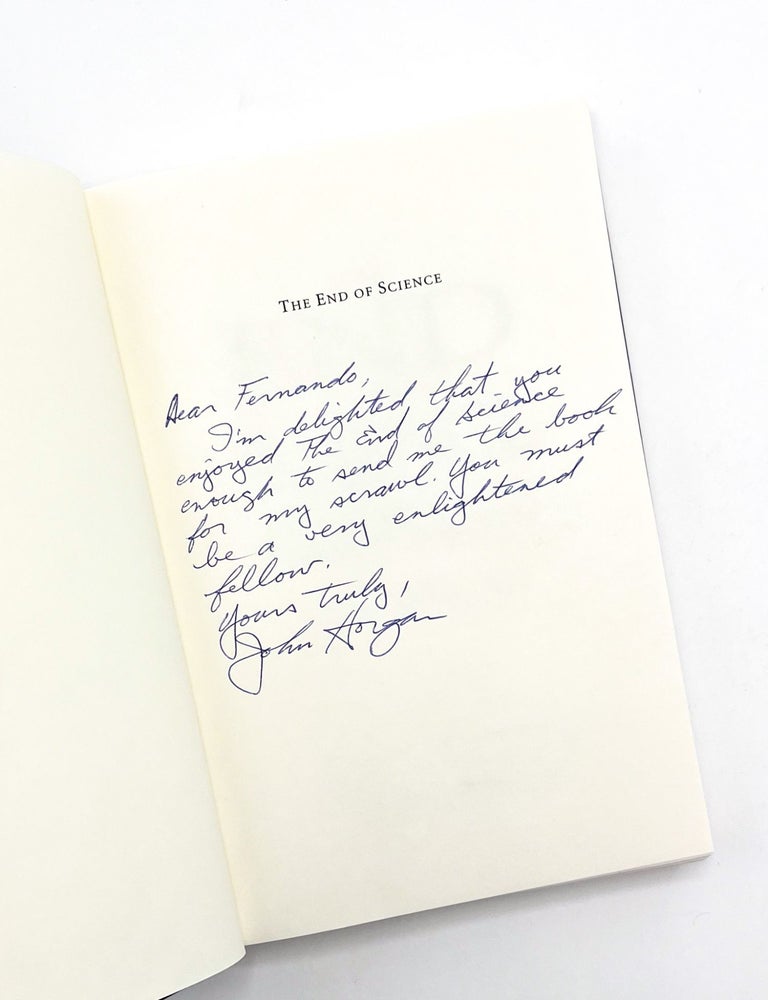 THE END OF SCIENCE
Dear Fernando,
I'm delighted that you
enjoyed The End of Science
enough to send me the book
for my scrawl. You must
be a very enlightened
fellow.
Yours truly,
John Horgan